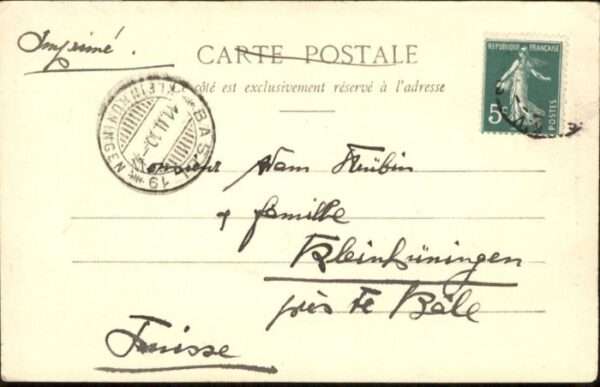 Imprimé.
CARTE POSTALE
côté est exclusivement réservé à l'adresse
REPUBLIQUE FRANÇAISE
5c
POSTES
BASEL 19
KLEINHÜNINGEN
Monsieur
& famille
Kleinhüningen
près de Bâle
Suisse